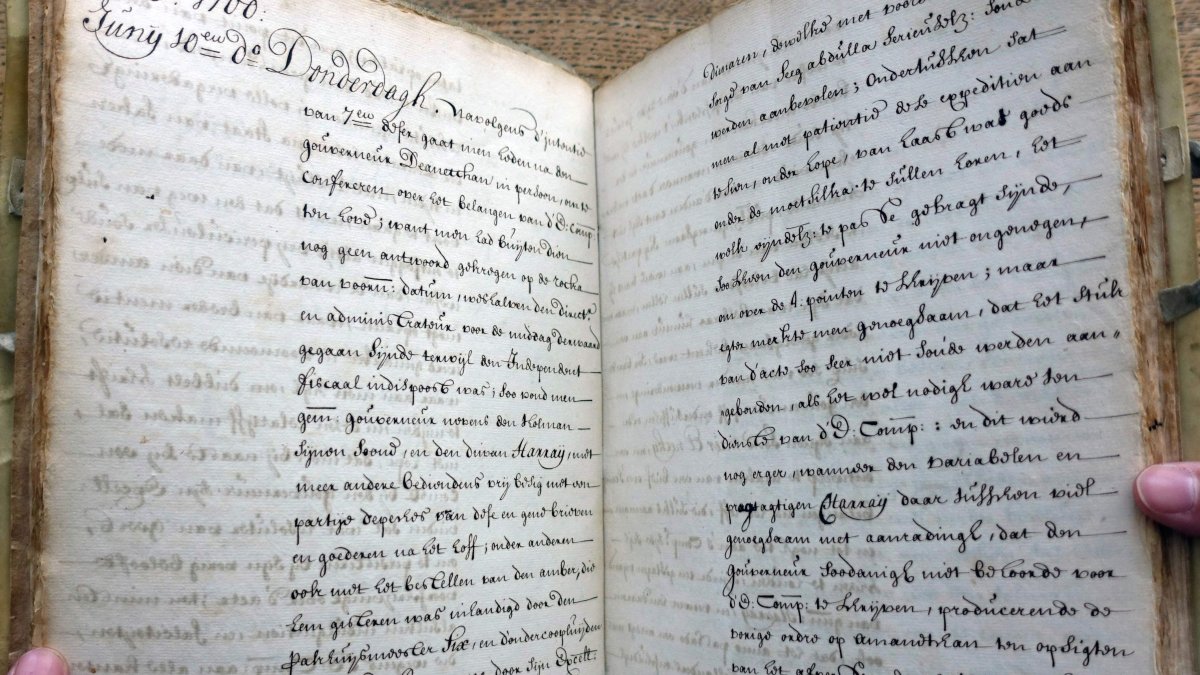 1700.
Juny 10en do Donderdagh, navolgens d'intentie
van 7en deser gaat men heden na den
gouverneur Deanetchan in persoon, om te
Confereren, over het belangen van d'E: Comp:
ten hove; want men had buijten dien
nog geen antwoord gekregen op de rocka
van voorn: datum, weshalven den direct:r
en administrateur voor de middag derwaard
gegaan sijnde terwijl den Independent
fiscaal indispoost was; soo vond men
gem: gouverneur nevens den
en den divan Harraij, met
meer andere bediendens vrij besig met een
partije depeches van dese en gene brieven
en goederen na het hoff; onder anderen
ook met het bestellen van den amber, die
hem gisteren was inhandigd door den
Pakhuijsmeester Six, en d'ondercoopluijden
door sijn Excell:
dewelke met
sorge van Seeg abdulla serieuselz:
werden aanbevolen; Ondertusschen sat
men al met patientie dese expeditien aan
te sien, onder hope, van haast wat goeds
onder de te sullen horen, het
welk te pas gebragt sijnde,
soo scheen den gouverneur niet ongenegen,
om over de 4: pointen te schrijven; maar
egter merkte men genoegsaam, dat het stuk
van d'acte soo seer niet soude werden aan=
gebonden, als het wel nodigh ware ten
dienste van d'E: Comp:; en dit wierd
nog erger, wanneer den variabelen en
Harraij daar tusschen viel
genoegsaam met aanradingh, dat den
gouverneur soodanigh niet behoorde voor
d'E: Comp: te schrijven, producerende de
vorige ordre op amandchan ten opsigten
van het